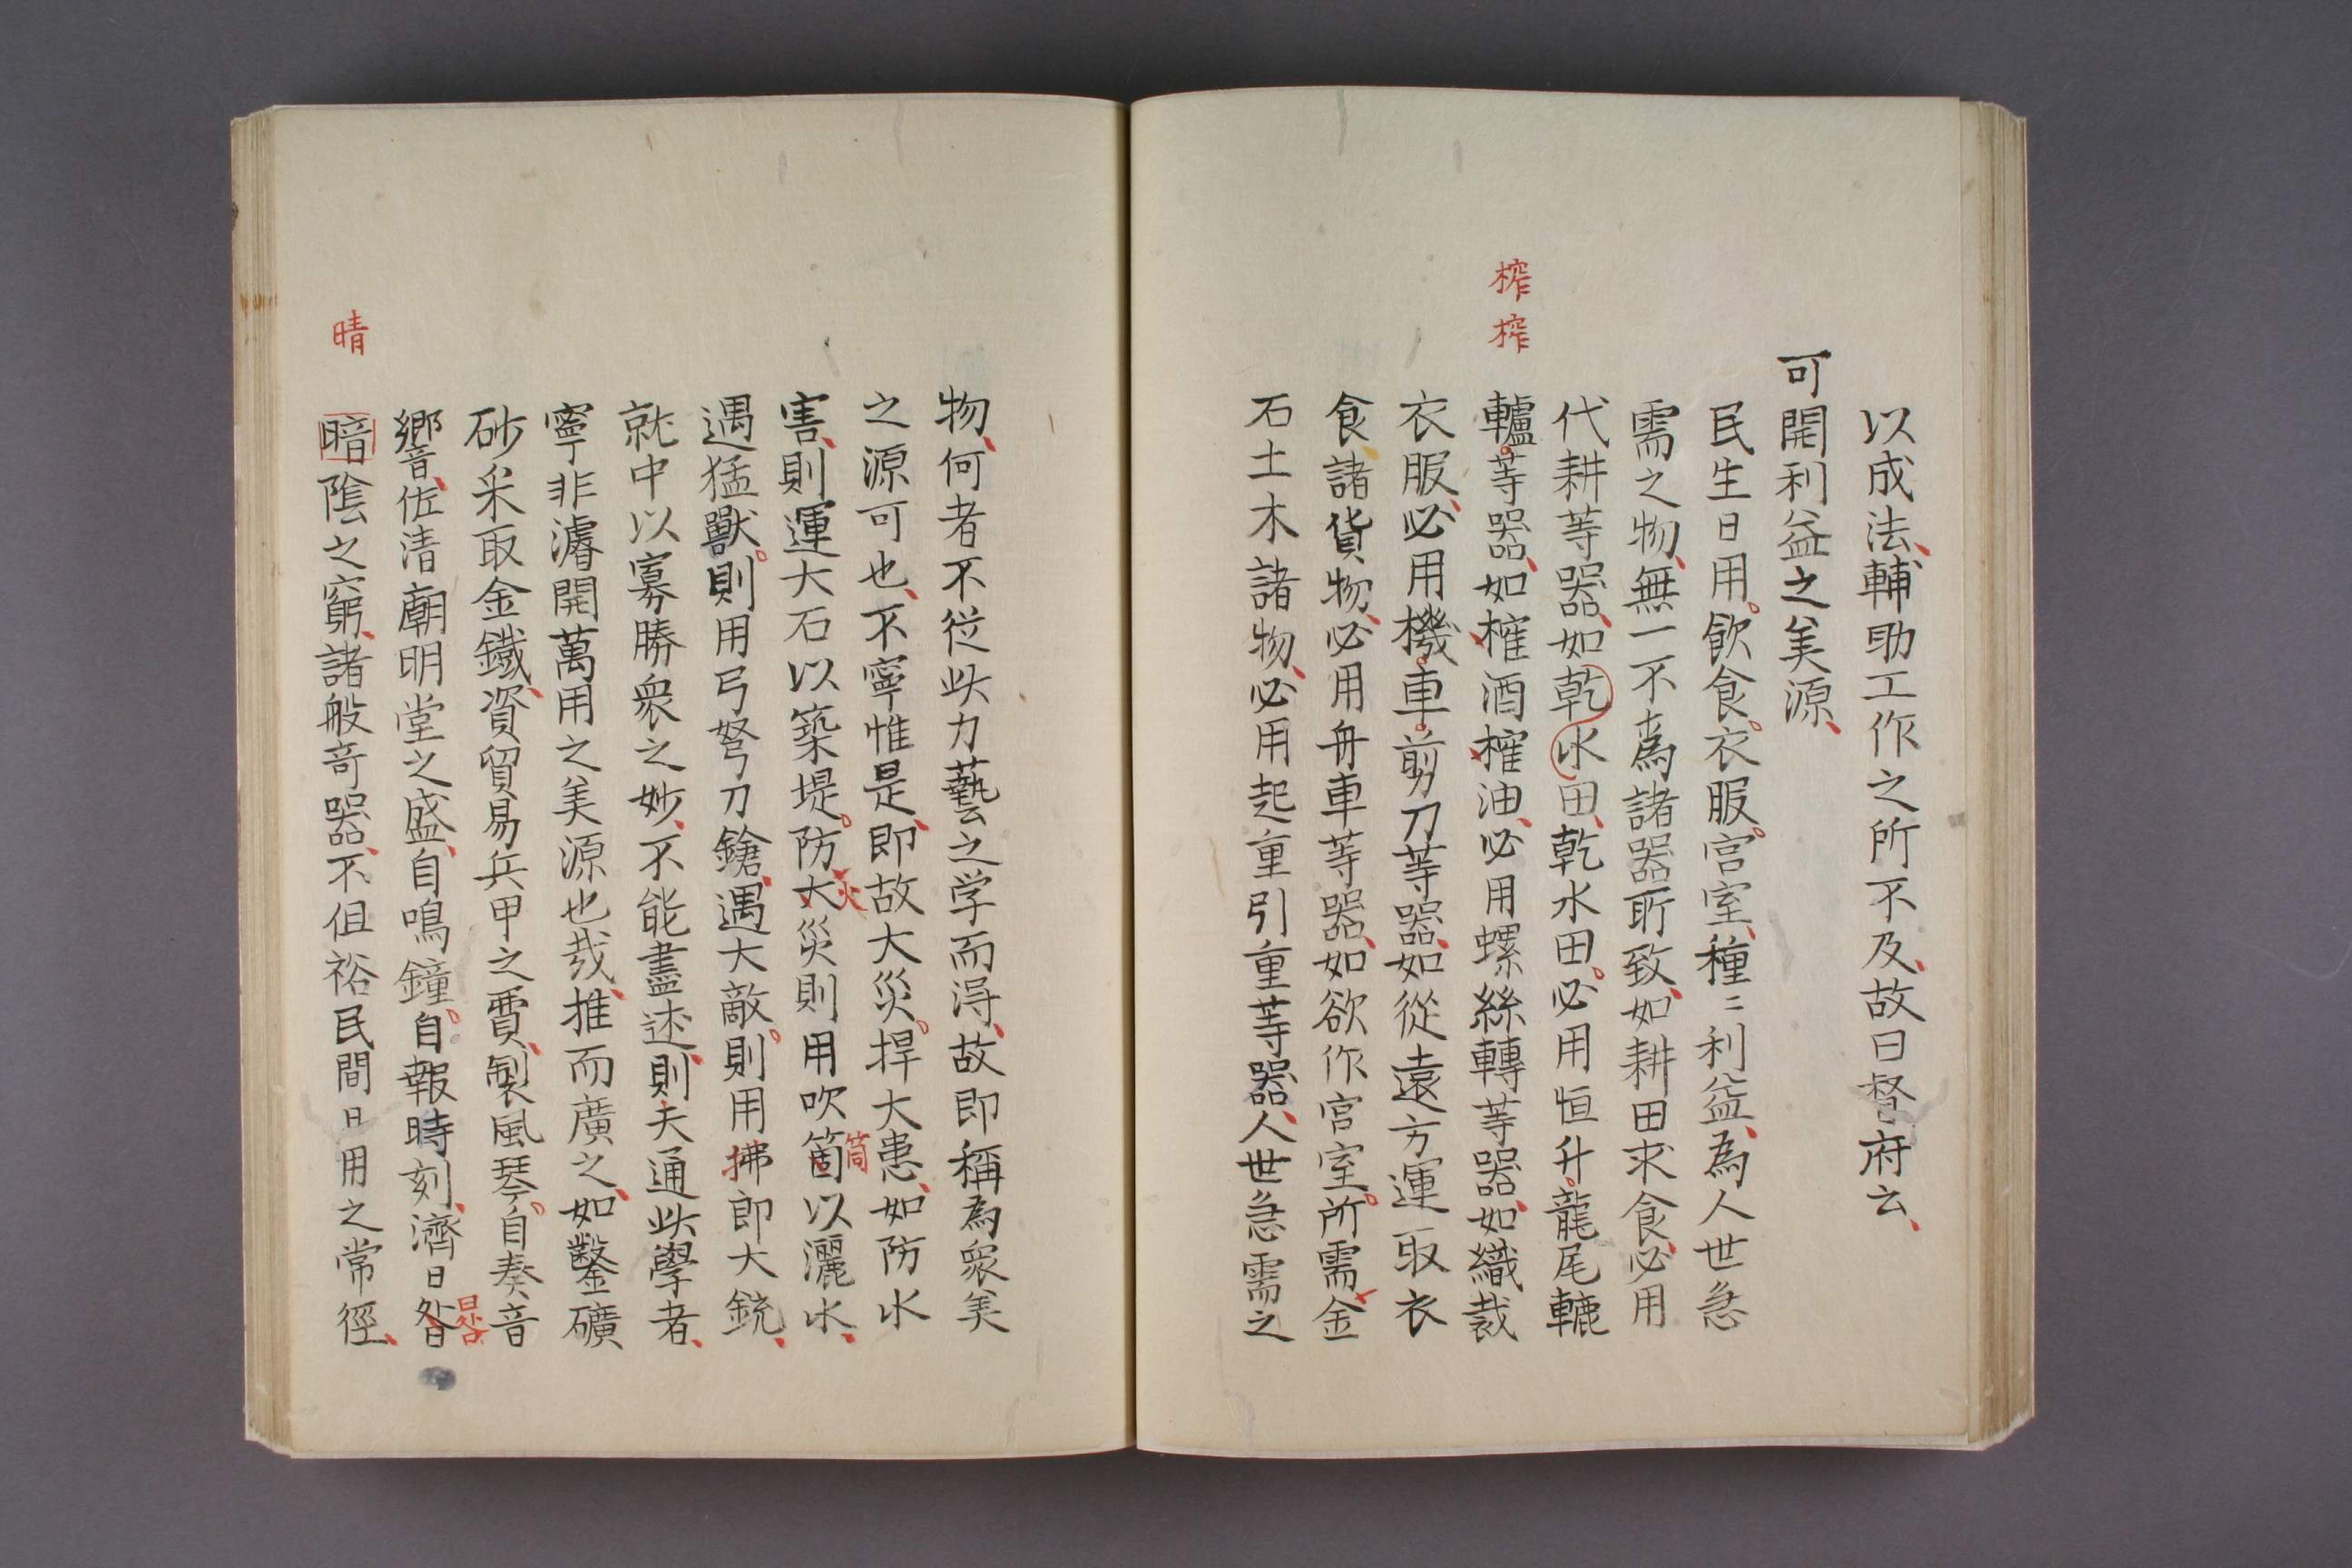 以成法、輔助工作之所不及、故曰督府云、
可開利益之美源、
民生日用。飲食。衣服。宮室、種〻利益、為人世急
需之物、無一不為諸器所致、如耕田求食、必用
代耕等器、如乾水田、乾水田。必用恒升。龍尾轆
榨榨
轤。等器、如榷酒榷油、必用螺絲轉等器、如織裁
衣服、必用機。車。剪刀等器、如從遠方運取衣
食、諸貨物、必用舟車等器、如欲作宮室。所需金
石土木諸物、必用起重引重等器、人世急需之
物、何者不従此力藝之学而得、故即稱為衆美
之源可也、不寧惟是、即故大災。捍大患、如防水
害、則運大石以築堤。防大災則用吹箇以灑水、
火
筒
遇猛獸。則用弓弩刀鎗、遇大敵。則用拂郎大銃、
就中以寡勝衆之妙、不能盡述、則夫通此學者、
寧非濬開萬用之美源也哉、推而廣之、如鑿礦
砂采取金鐵、資貿易兵甲之賈、製風琴。自奏音
響、佐清廟明堂之盛、自鳴鐘。自報時刻、濟日晷
日晷
晴
暗陰之窮、諸般奇器、不但裕民間日用之常徑、